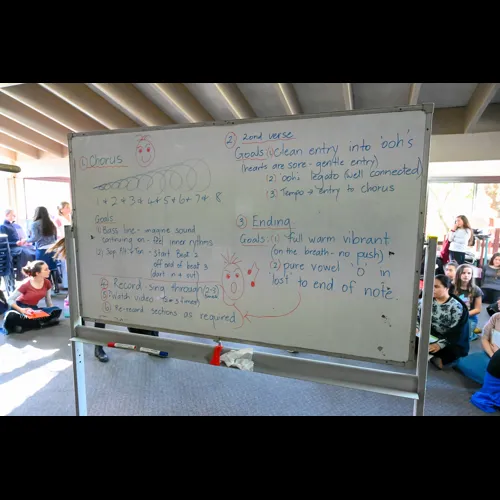 ① Chorus
1 * 2 * 3 * 4 * 5 * 6 * 7 * 8
Goals
1) Bass line - imagine sound
continuing on - inner rhythms
2) Sop Alt & Ten - Start Beat 2
off end of beat 3
(don't
④ Record sing through (2-3
⑤ Watch video
⑥ Re-record sections as required
② 2nd verse
Goals (1) clean entry into 'ooh's
(hearts are sore - gentle entry)
(2) oohs legato (well connected)
(3) Tempo → entry to chorus
③ Ending
Goals: (1) full warm vibrant
(on the breath - no push)
(2) pure vowel 'o' in
lost to end of note.